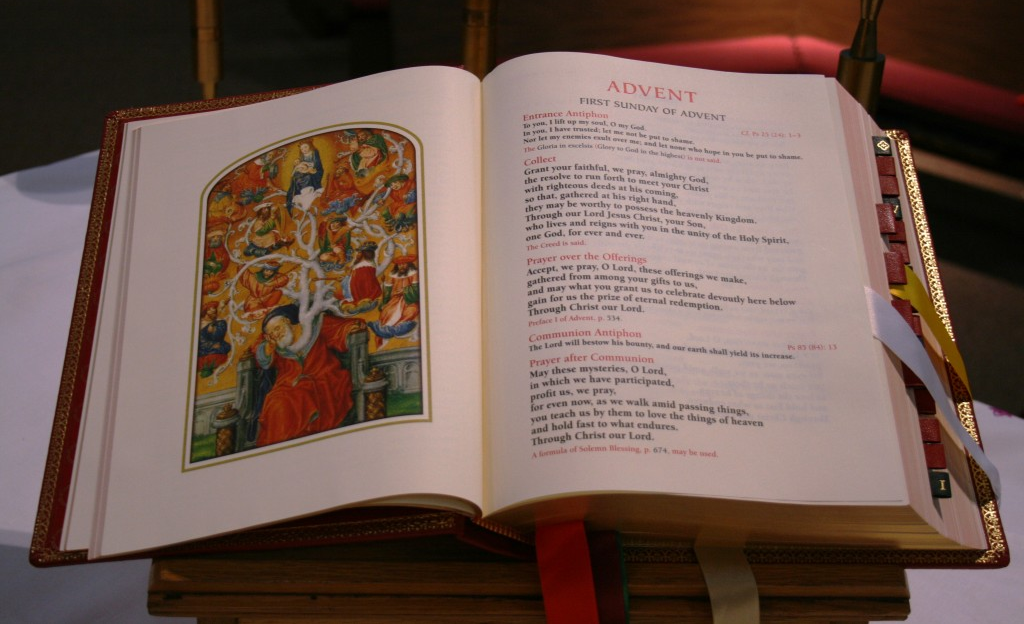 ADVENT
FIRST SUNDAY OF ADVENT
Entrance Antiphon
Cf. Ps 25 (24): 1-3
To you, I lift up my soul, O my God.
In you, I have trusted; let me not be put to shame.
Nor let my enemies exult over me; and let none who hope in you be put to shame.
The Gloria in excelsis (Glory to God in the highest) is not said.
Collect
Grant your faithful, we pray, almighty God,
the resolve to run forth to meet your Christ
with righteous deeds at his coming,
so that, gathered at his right hand,
they may be worthy to possess the heavenly Kingdom.
Through our Lord Jesus Christ, your Son,
who lives and reigns with you in the unity of the Holy Spirit,
one God, for ever and ever.
The Creed is said.
Prayer over the Offerings
Accept, we pray, O Lord, these offerings we make,
gathered from among your gifts to us,
and may what you grant us to celebrate devoutly here below
gain for us the prize of eternal redemption.
Through Christ our Lord.
Preface I of Advent, p. 534.
Communion Antiphon
Ps 85 (84): 13
The Lord will bestow his bounty, and our earth shall yield its increase.
Prayer after Communion
May these mysteries, O Lord,
in which we have participated,
profit us, we pray,
for even now, as we walk amid passing things,
you teach us by them to love the things of heaven
and hold fast to what endures.
Through Christ our Lord.
A formula of Solemn Blessing, p. 674, may be used.
I